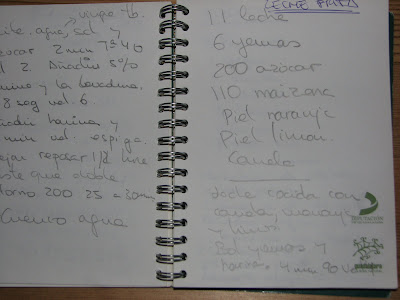 aceite, agua, sal y
azucar 2 min 7ª 40
vel 2. Añadir 5%
y la levadura.
8 seg vol. 6.
Añadir harina y
min vel. espiga.
Dejar reposar 1/2 hora
este que doble.
Horno 200 25 = 30 min
Cuenco agua
LECHE FRITA
1 l leche
6 yemas
200 azúcar
110 maizena
Piel naranja
Piel limon.
Canela
Leche cocida con
canela, naranja
y limon.
Bol yemas y
4 min 90 Vel